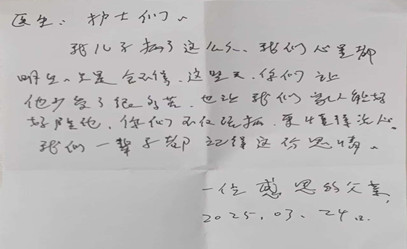 医生、护士们、
我儿子病了这么久、我们心里都
明白、也是舍不得、这些天、你们让
他少受了很多苦、也让我们家人能好
好陪他、你们不仅治病、更懂得让人。
我们一辈子都记得这份恩情。
一位感恩的父亲
2025.03.24。